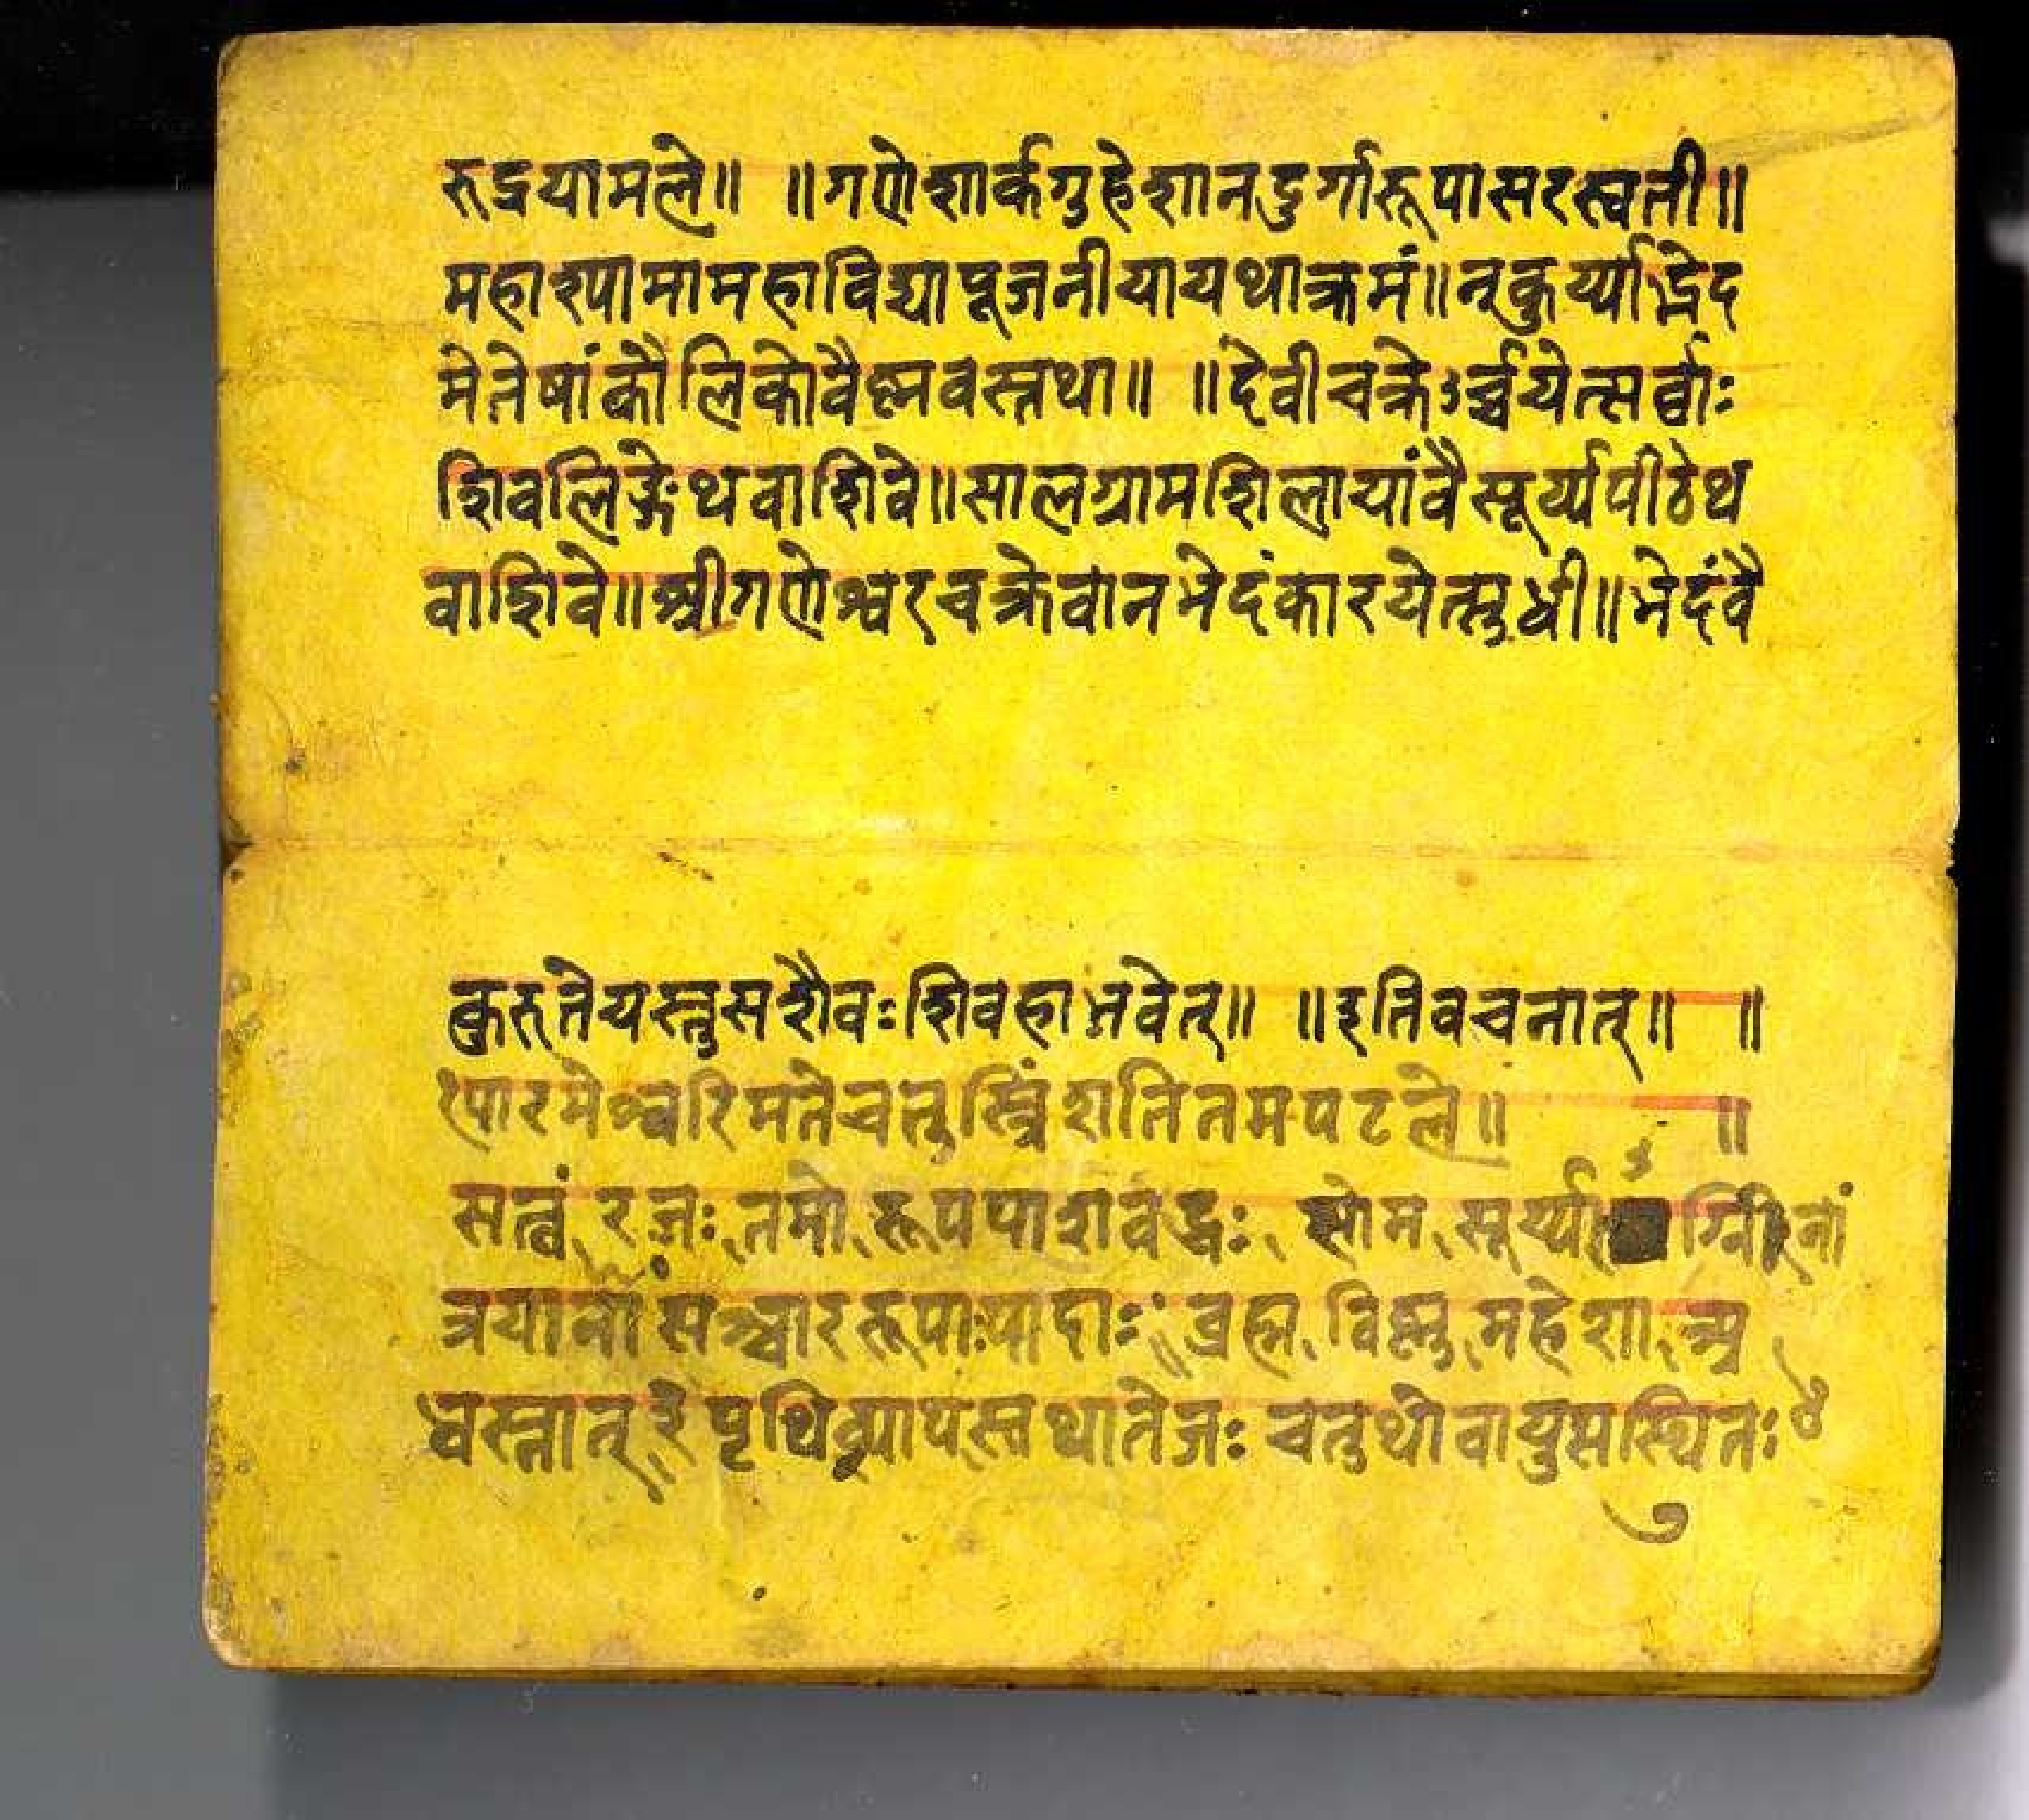 रुद्रयामले॥ ॥गणेशार्कगुहेशानदुर्गारूपासरस्वती॥
महाश्यामामहाविद्यापूजनीयायथाक्रमं॥नकुर्य्याद्भेद
मेतेषांकौलिकोवैष्णवस्तथा॥ ॥देवीचक्रेऽर्च्चयेत्सर्वाः
शिवलिङ्गेथवाशिवे॥सालग्रामशिलायांवैसूर्य्यपीठेथ
वाशिवे॥श्रीगणेश्वरचक्रेवानभेदंकारयेत्सुधी॥भेदंवै
कुरुतेयस्तुसशैवःशिवहाभवेत्॥ ॥इतिवचनात्॥ ॥
पारमेश्वरिमतेचतुस्त्रिंशतितमपटले॥ ॥
सत्वं रजः तमो रूपपाशवद्धः सोम सूर्य्य
सञ्चाररूपाःपादाः ब्रह्म विष्णु महेशा
पृथिव्यापस्तथातेजः चतुर्थोवायु